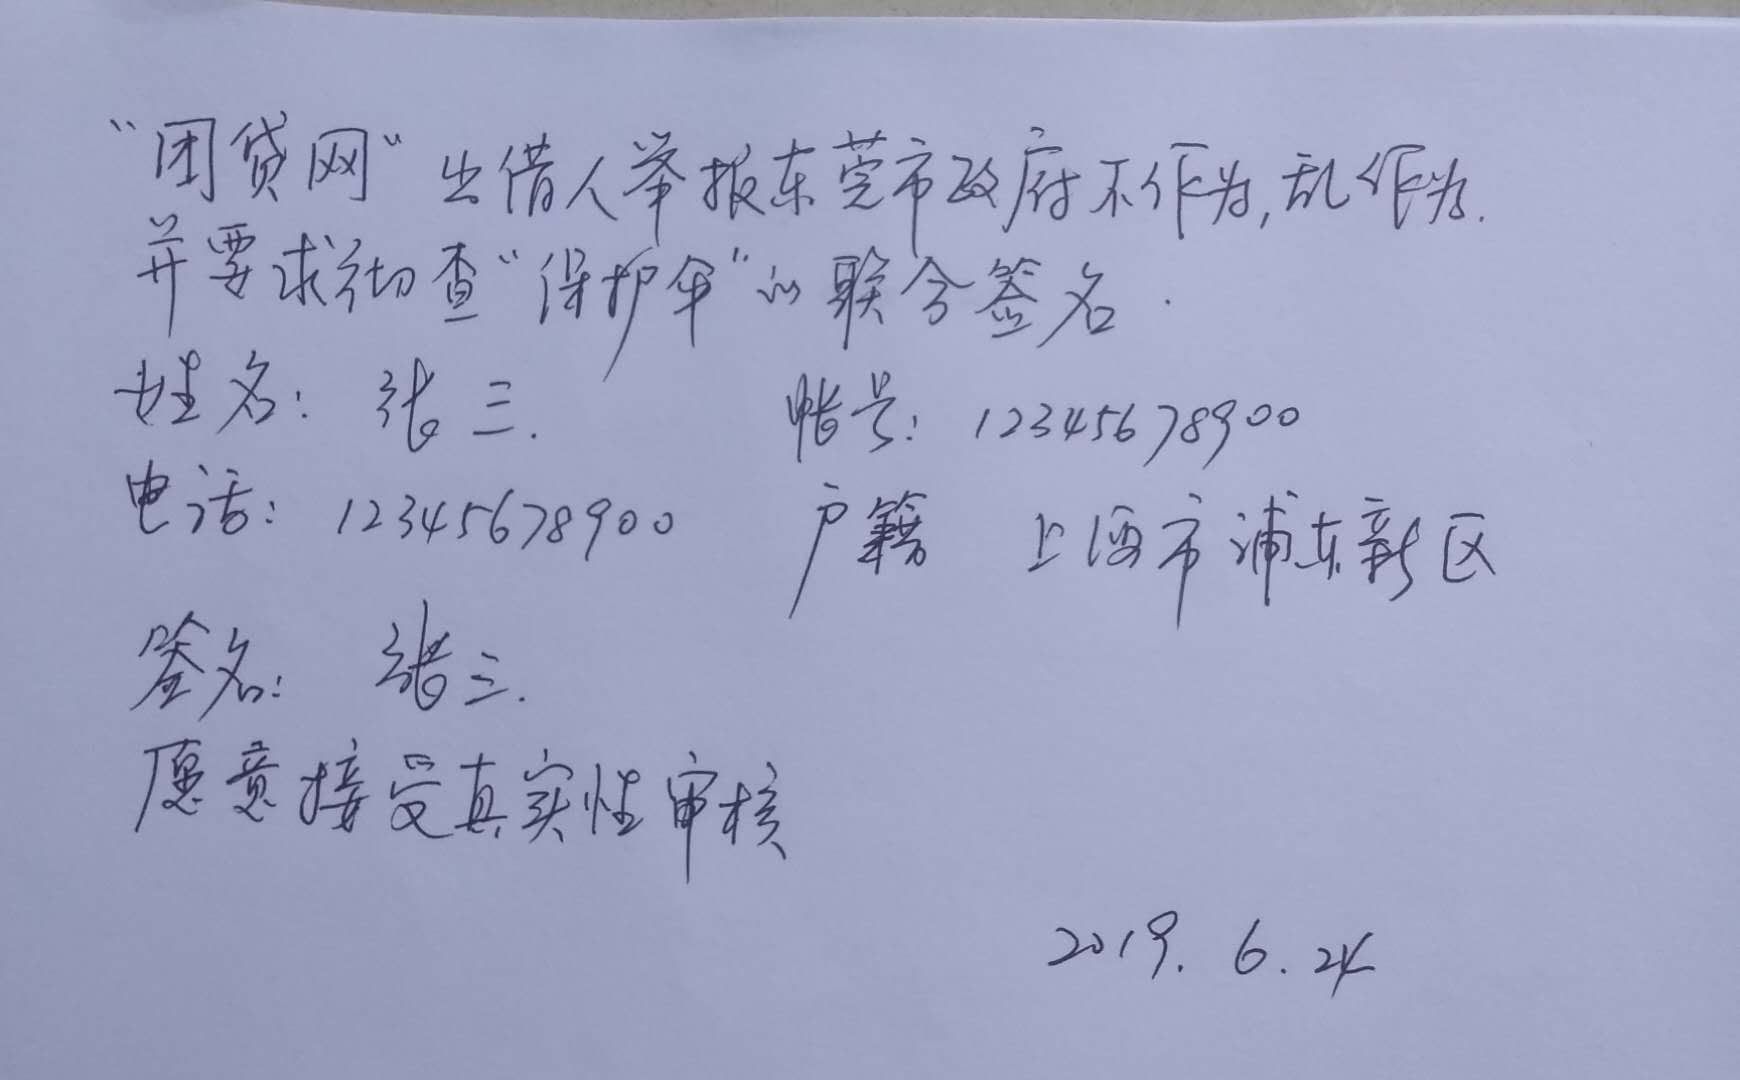 “团贷网”出借人举报东莞市政府不作为,乱作为.
并要求彻查“保护伞”的联合签名.
姓名: 张三. 帐号: 12345678900
电话: 12345678900 户籍 上海市浦东新区
签名: 张三.
愿意接受真实性审核
2019.6.24